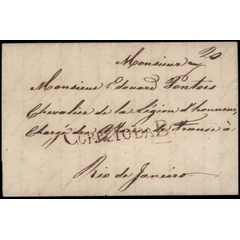 Monsieur
Monsieur Edouard Pontois
Chevalier de la Légion d'honneur,
Chargé des Affaires de France à
Rio de Janeiro.